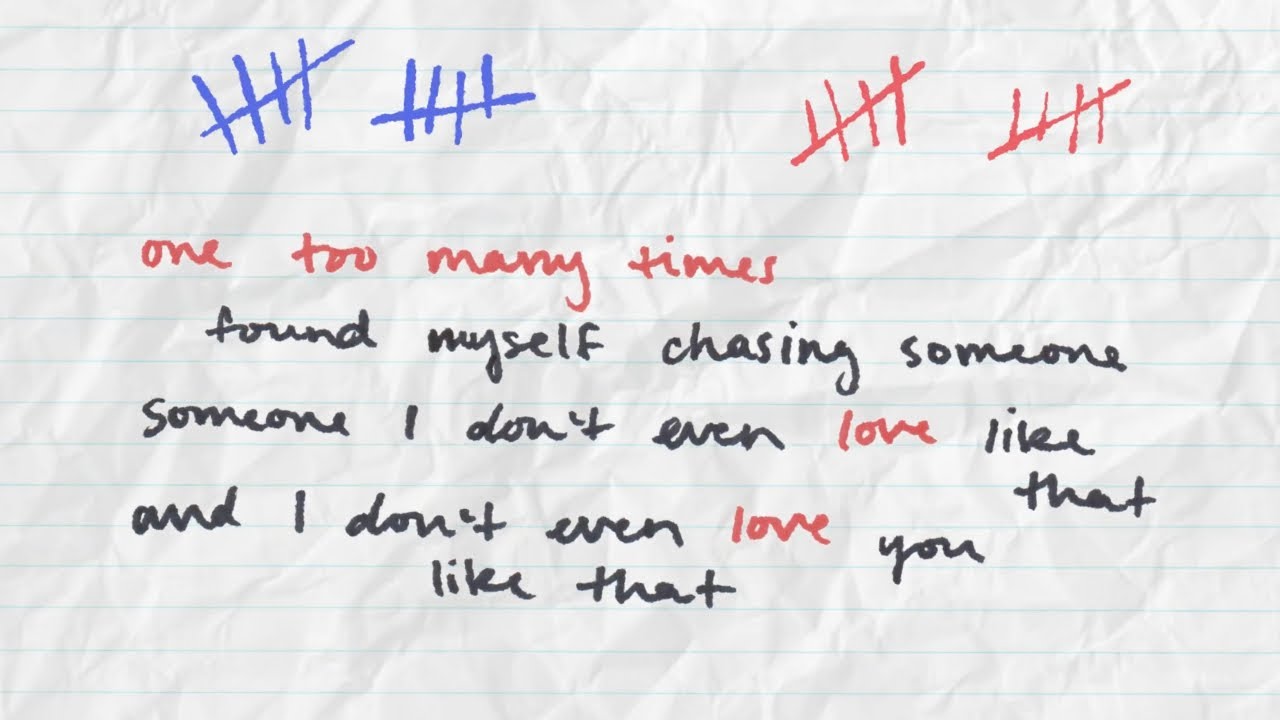 one too many times
found myself chasing someone
someone I don't even love like
that
and I don't even love you
like that